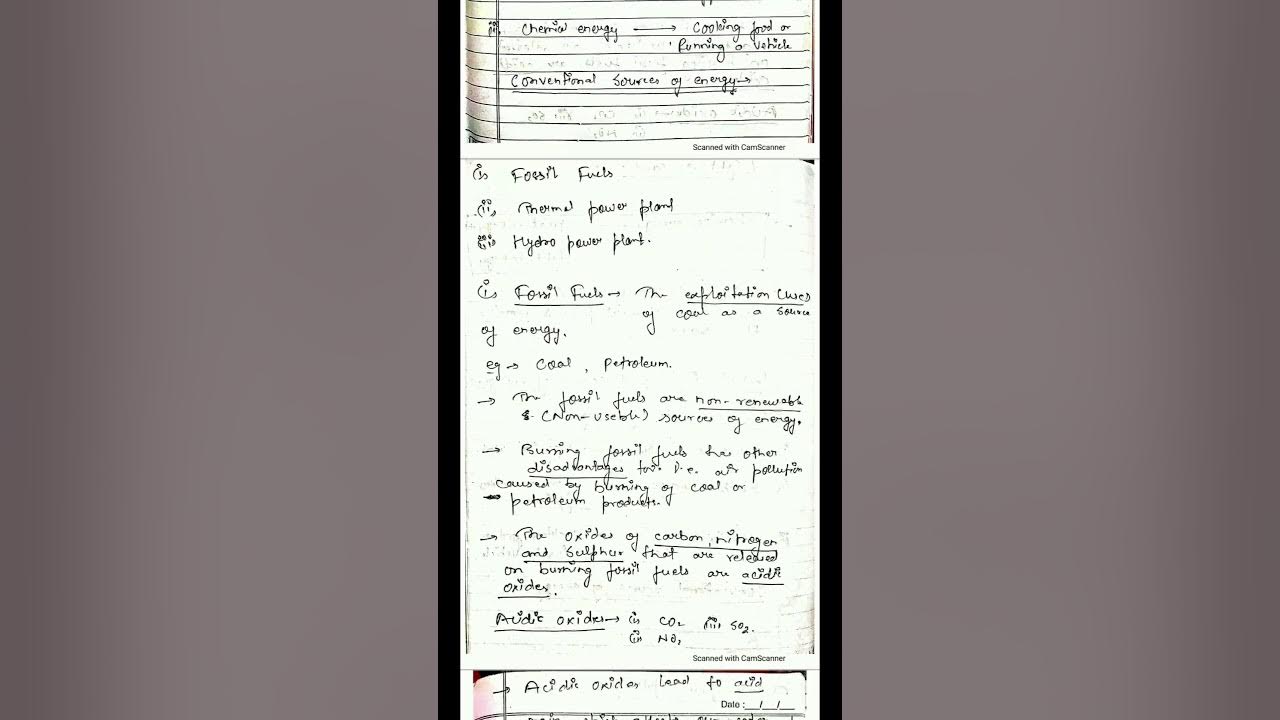 iii) Chemical energy → Cooking food or
Running a vehicle
Conventional Sources of energy →
Scanned with CamScanner
i) Fossil Fuels
ii) Thermal power plant
iii) Hydro power plant.
i) Fossil Fuels → The exploitation (use)
of coal as a source
of energy.
eg → Coal, Petroleum.
→ The fossil fuels are non-renewable
& (Non-useble) sources of energy.
→ Burning fossil fuels has other
disadvantages too. i.e. air pollution
caused by burning of coal or
petroleum products.
→ The oxides of carbon, nitrogen
and sulphur that are released
on burning fossil fuels are acidic
oxides.
Acidic oxides → i) CO2 iii) SO2.
ii) NO2
Scanned with CamScanner
→ Acidic oxides lead to acid
Date :__/__/__